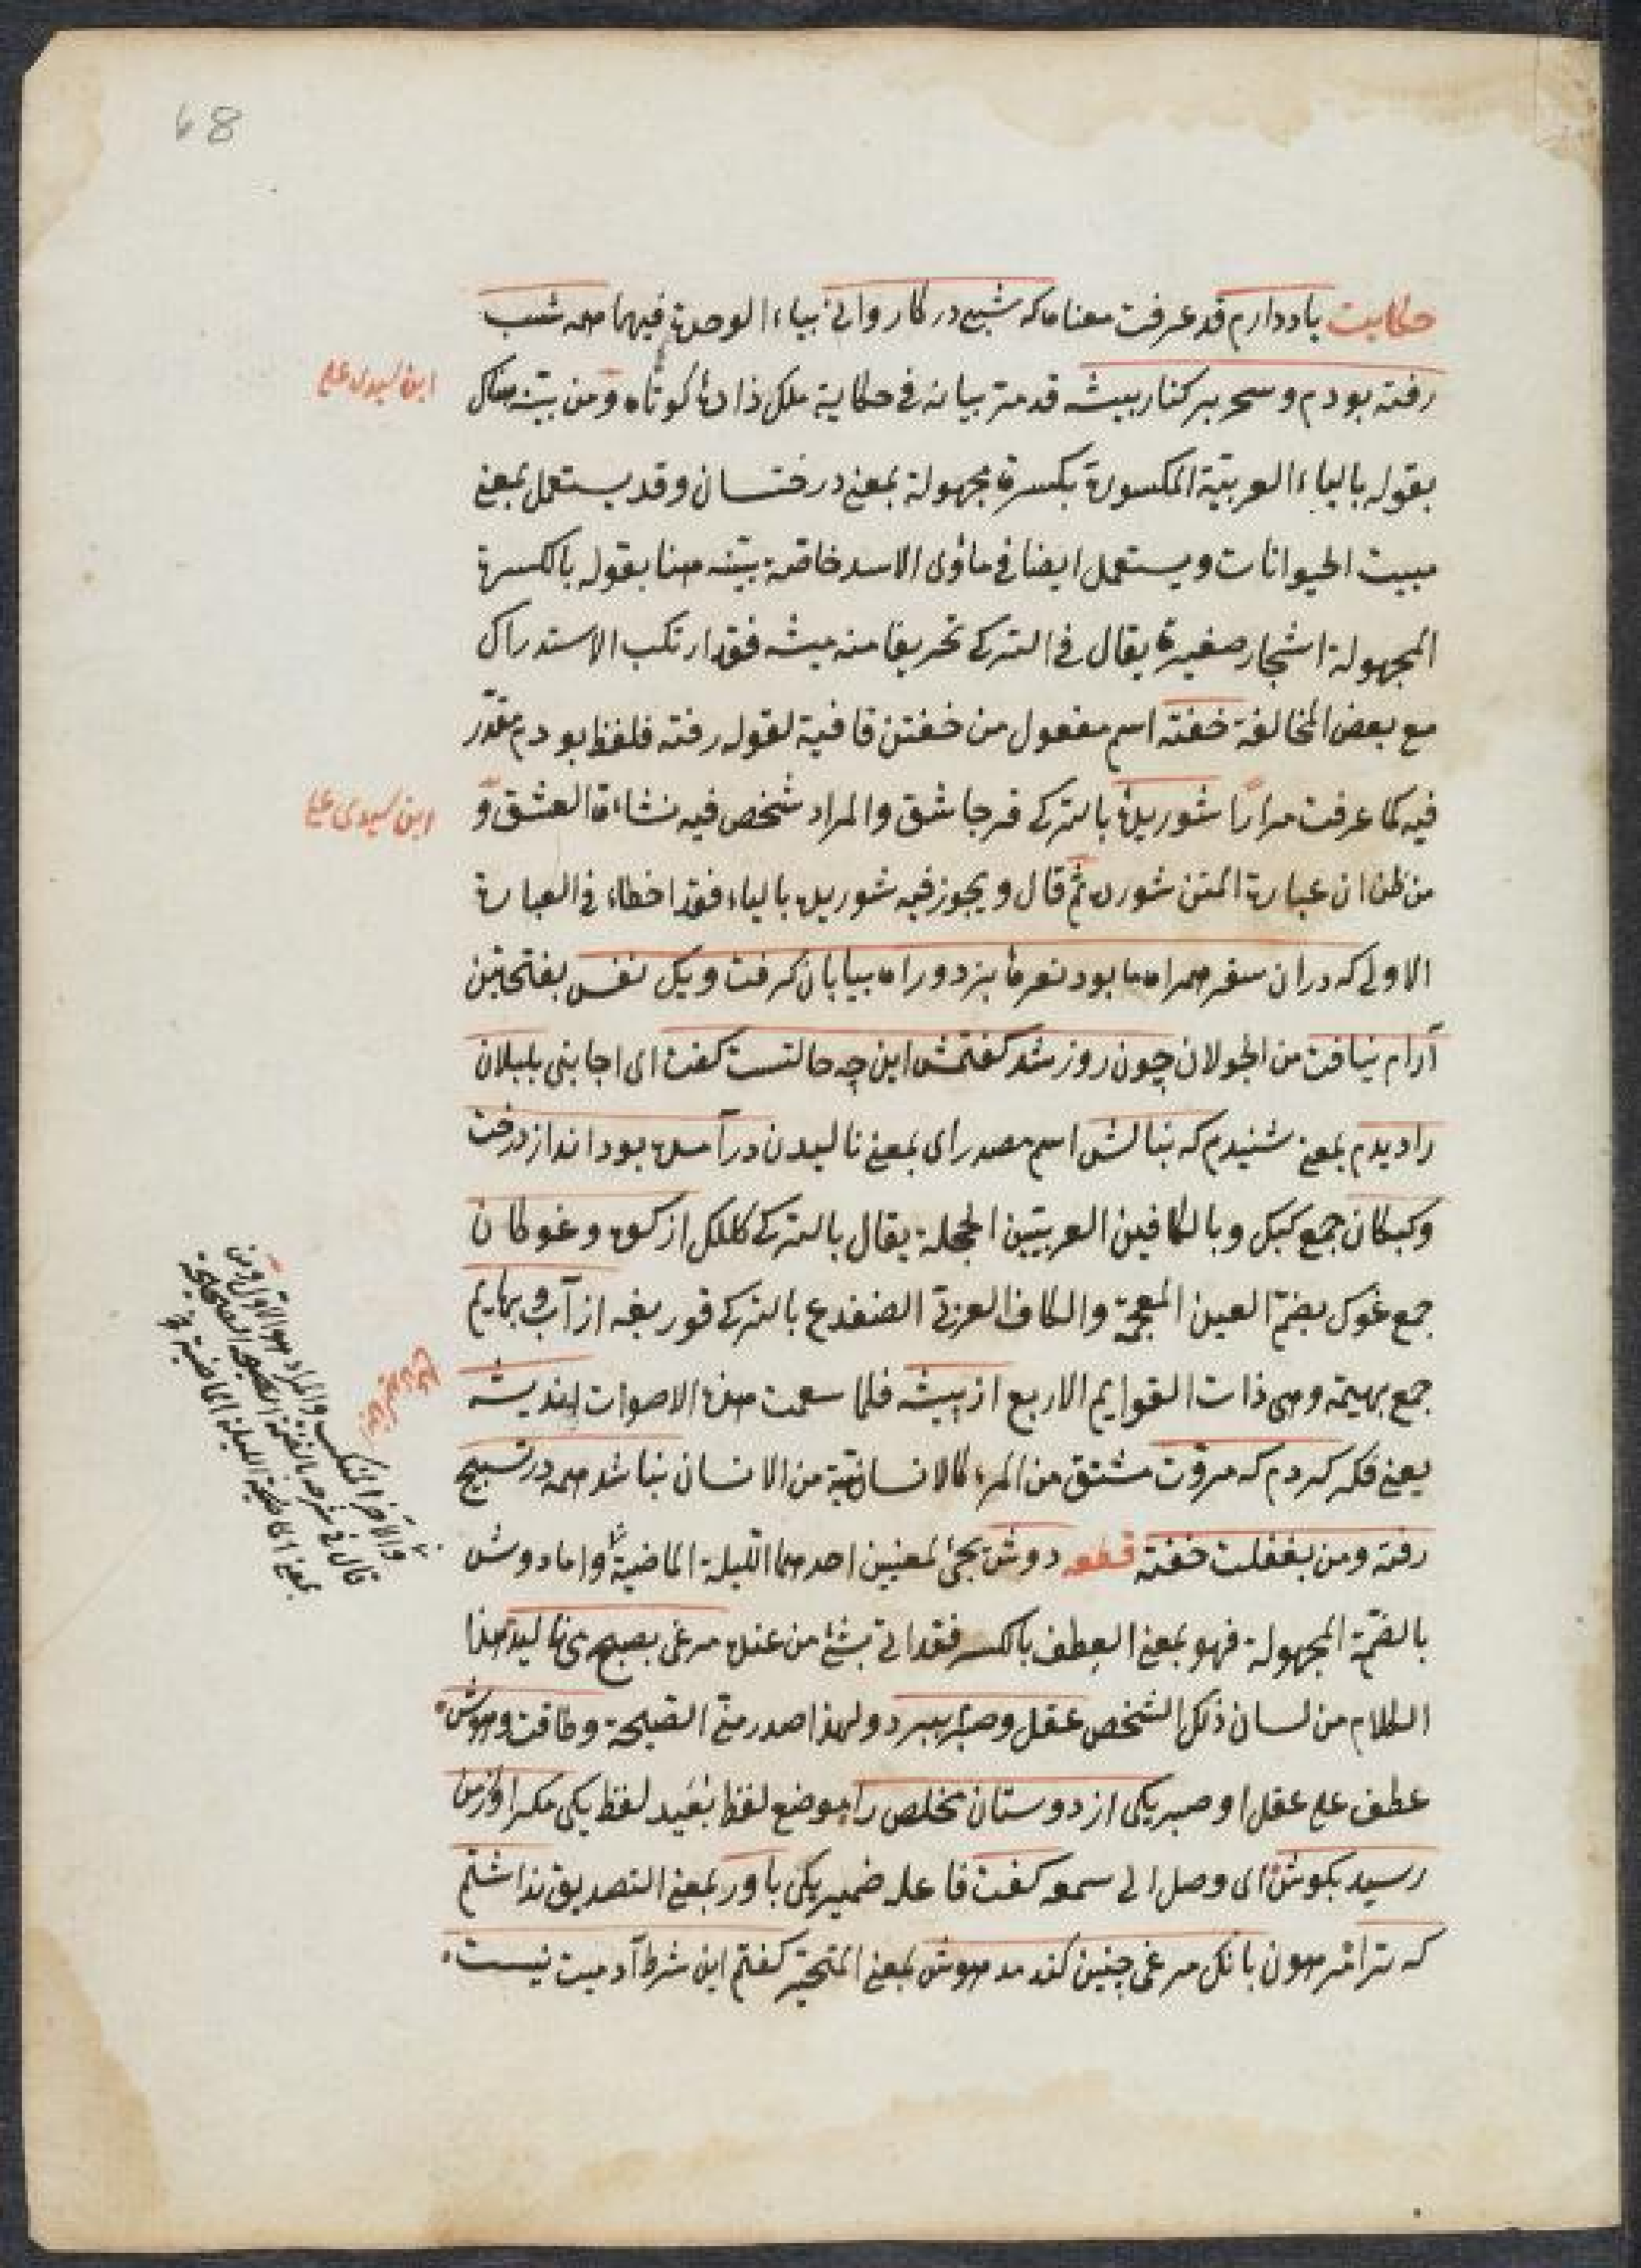 68
حكايت ياد دارم قد عرفت معناه كه شبى در كاروانى بياء الوحدة فيهما همه شب
ابن سيدى على
رفته بودم وسحر بر كنار بيشه قد مر بيانه فى حكاية ملك زادۀ كوتاه ومن بيّنه هناك
بقوله بالباء العربيّة المكسورة بكسرة مجهولة بمعنى درختسان وقد يستعمل بمعنى
مبيت الحيوانات ويستعمل ايضا فى مأوى الاسد خاصّة بيّنه هنا بقوله بالكسرة
المجهولة اشجار صغيرة يقال فى التركى تحريفا منه ميشه فقد ارتكب الاستدراك
مع بعض المخالفة خفته اسم مفعول من خفتن قافية لقوله رفته فلفظ بودم مقدّر
فيه كما عرفت مرارًا شوريدۀ بالتركى قرجاشق والمراد شخص فيه نشاءة العشق و
ابن سيدى على
من ظن ان عبارة المتن شوره ثم قال ويجوز فيه شوريده بالياء فقد اخطاء فى العبارة
الاولى كه دران سفر همراه ما بود نعرۀ بزد وراه بيابان كرفت ويك نفس بفتحتين
آرام نيافت من الجولان چون روز شد كفتمش اين چه حالتست كفت اى اجابنى بلبلان
را ديدم بمعنى شنيدم كه بنالش اسم مصدر اى بمعنى ناليدن درآمده بودند از درخت
وكبكان جمع كبك وبالكافين العربيتين الحجلة يقال بالتركى ككلك از كوه وغوكان
جمع غوك بضمّ الغين المعجمة والكاف العربى الضفدع بالتركى قوربغه از آب وبهايم
جمع بهيمة وهى ذات القوايم الاربع از بيشه فلما سمعت هذه الاصوات انديشه
يعنى فكر كردم كه مروّت مشتق من المرء كالانسانيّة من الانسان نباشد همه در تسبيح
رفته ومن بغفلت خفته قطعه دوش يجئ لمعنيين احدهما الليلة الماضية واما دوش
والآخر المنكب والمراد هو الاوّل ومن
قال فى شرحه
بمعنى الليلة الماضية
بالضمّة المجهولة فهو بمعنى العطف بالكسر فقد اتى بشئ من عنده مرغى بصبح مى ناليد هذا
الكلام من لسان ذلك الشخص عقل وصبرم ببرد ولهذا صدر منّى الصيحة وطاقت وهوش
عطف على عقل او صبر يكى از دوستان مخلص را موضع لفظ بفيد لفظ يكى مكر آواز من
رسيد بكوش اى وصل الى سمعه كفت فاعله ضمير يكى باور بمعنى التصديق نداشتم
كه ترا هر بانك مرغى چنين كند مدهوش بمعنى المتحيّر كفتم اين شرط آدميت نيست